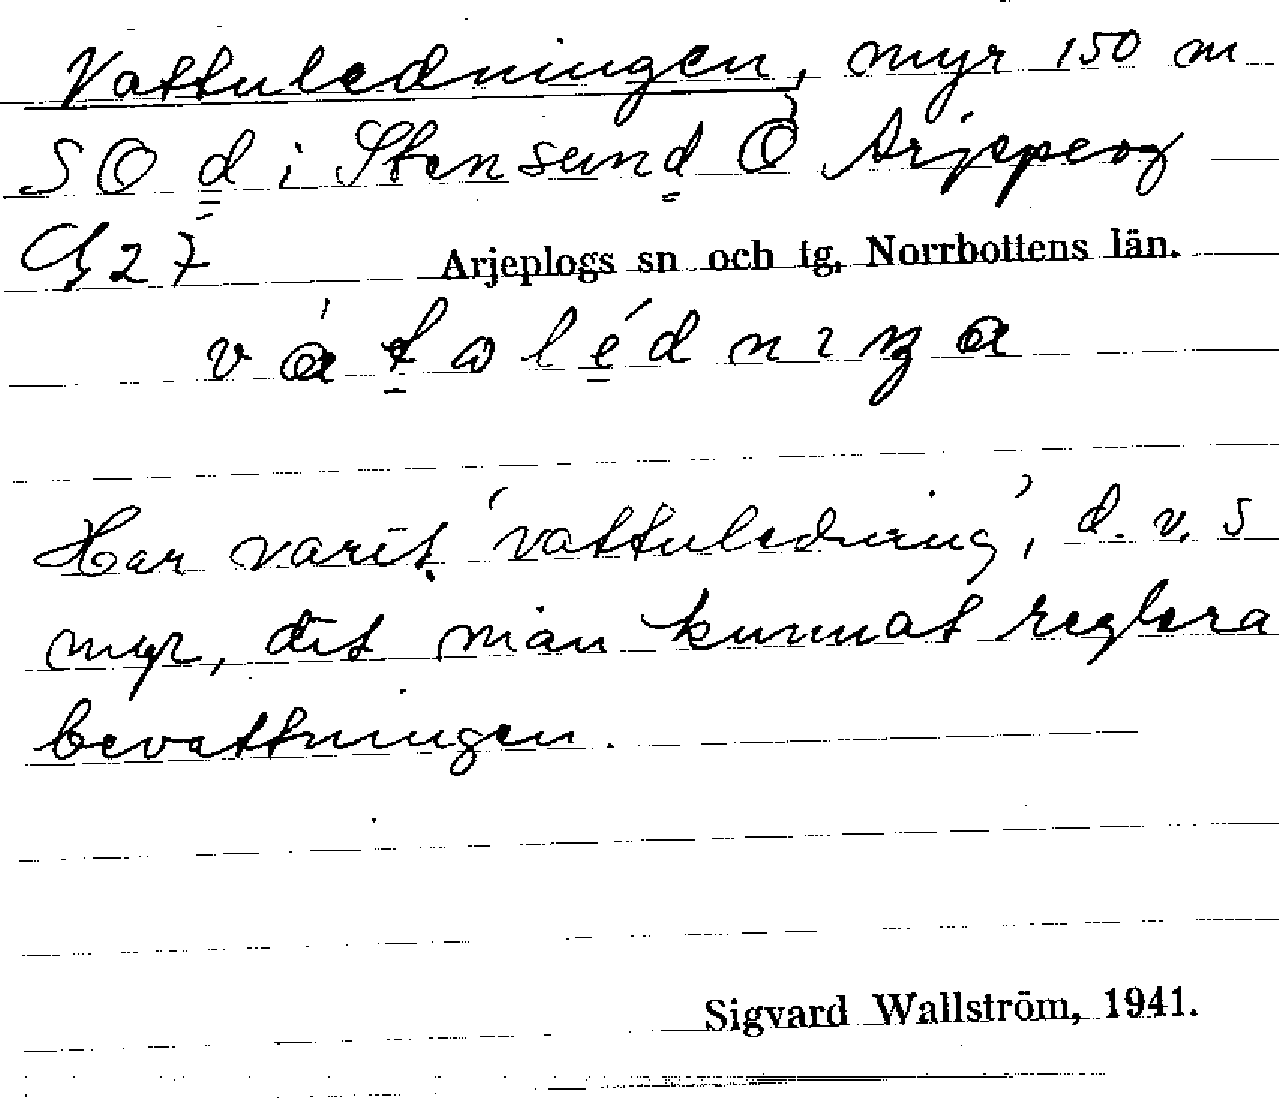 Vattuledningen, myr 150 m
SO d i Stensund Ö Arjeplog
G 27
Arjeplogs sn och tg, Norrbottens län.
Har varit 'vattuledning', d.v.s
myr, dit man kunnat reglera
bevattningen.
Sigvard Wallström, 1941.